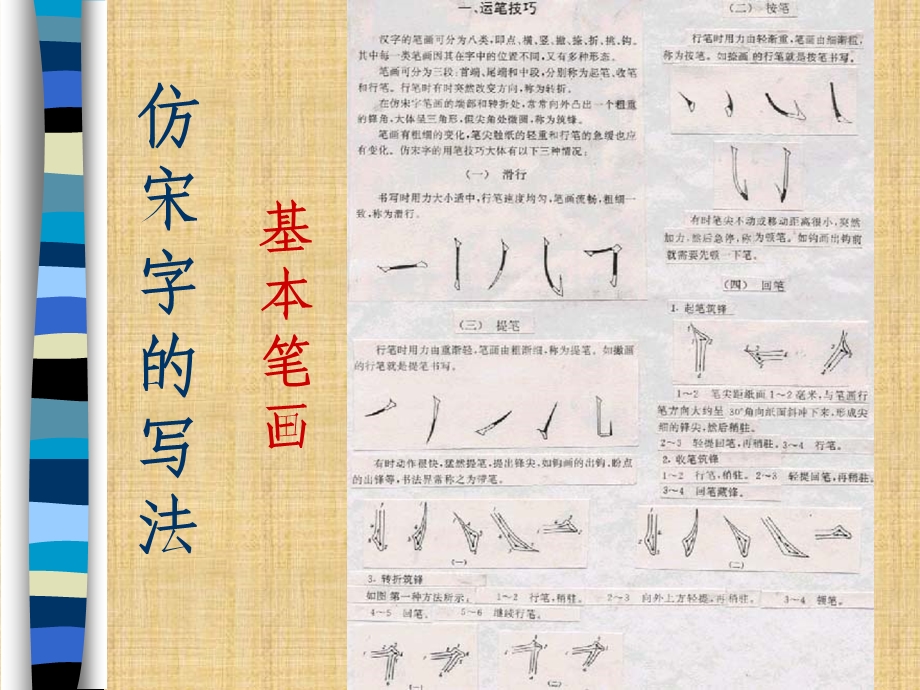 仿宋字的写法
基本笔画
一、运笔技巧
汉字的笔画可分为八类，即点、横、竖、撇、捺、折、挑、钩。
其中每一类笔画因其在字中的位置不同，又有多种形态。
笔画可分为三段：首端、尾端和中段，分别称为起笔、收笔
和行笔。行笔时有时突然改变方向，称为转折。
在仿宋字笔画的端部和转折处，常常向外凸出一个粗重
的锋角，大体呈三角形，但尖角处微圆，称为筑锋。
笔画有粗细的变化，笔尖触纸的轻重和行笔的急缓也应
有变化。仿宋字的用笔技巧大体有以下三种情况：
（一） 滑行
书写时用力大小适中，行笔速度均匀，笔画流畅，粗细一
致，称为滑行。
（二） 按笔
行笔时用力由轻渐重，笔画由细渐粗，
称为按笔。如捺画的行笔就是按笔书写。
有时笔尖不动或移动距离很小，突然
加力，然后急停，称为顿笔。如钩画出钩前
就需要先顿一下笔。
（三） 提笔
行笔时用力由重渐轻，笔画由粗渐细，称为提笔。如撇画
的行笔就是提笔书写。
有时动作很快，猛然提笔，提出锋尖，如钩画的出钩，
的出锋等，书法界常称之为带笔。
（四） 回笔
1. 起笔筑锋
1～2 笔尖距纸面1～2毫米，与笔画行
笔方向大约呈30°角向纸面斜冲下来，形成尖
细的锋尖，然后稍驻。
2～3 轻提回笔，再稍驻。3～4 行笔。
2. 收笔筑锋
1～2 行笔，稍驻。2～3 轻提回笔，再稍驻。
3～4 回笔藏锋。
（一）
（二）
3. 转折筑锋
如图 第一种方法所示， 1～2 行笔，稍驻。 2～3 向外上方轻提，再稍驻。 3～4 顿笔。
4～5 回笔。 5～6 继续行笔。
（一）
（二）